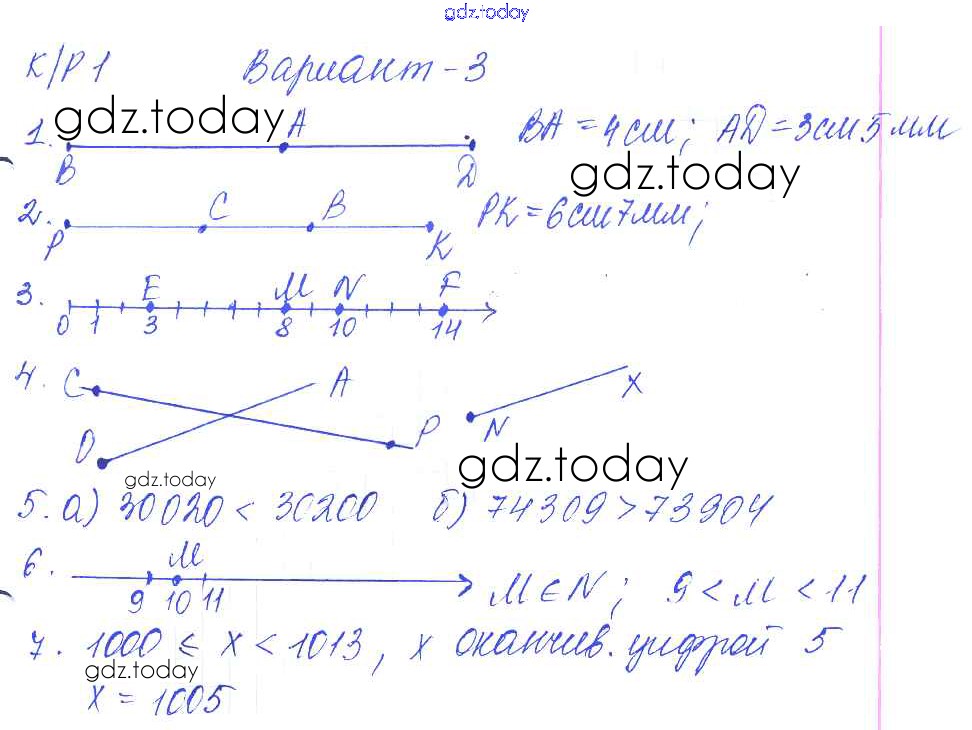 gdz.today
К/Р 1 Вариант - 3
gdz.today
1. B A D BA = 4 см; AD = 3 см 5 мм
gdz.today
2. P C B K PK = 6 см 7 мм;
3. E M N F
0 1 3 8 10 14
4. C A P O N X
gdz.today
gdz.today
5. а) 30020 < 30200 б) 74309 > 73904
6. M
9 10 11 M ∈ N; 9 < M < 11
7. 1000 ≤ x < 1013, x оканчив. цифрой 5
gdz.today
x = 1005